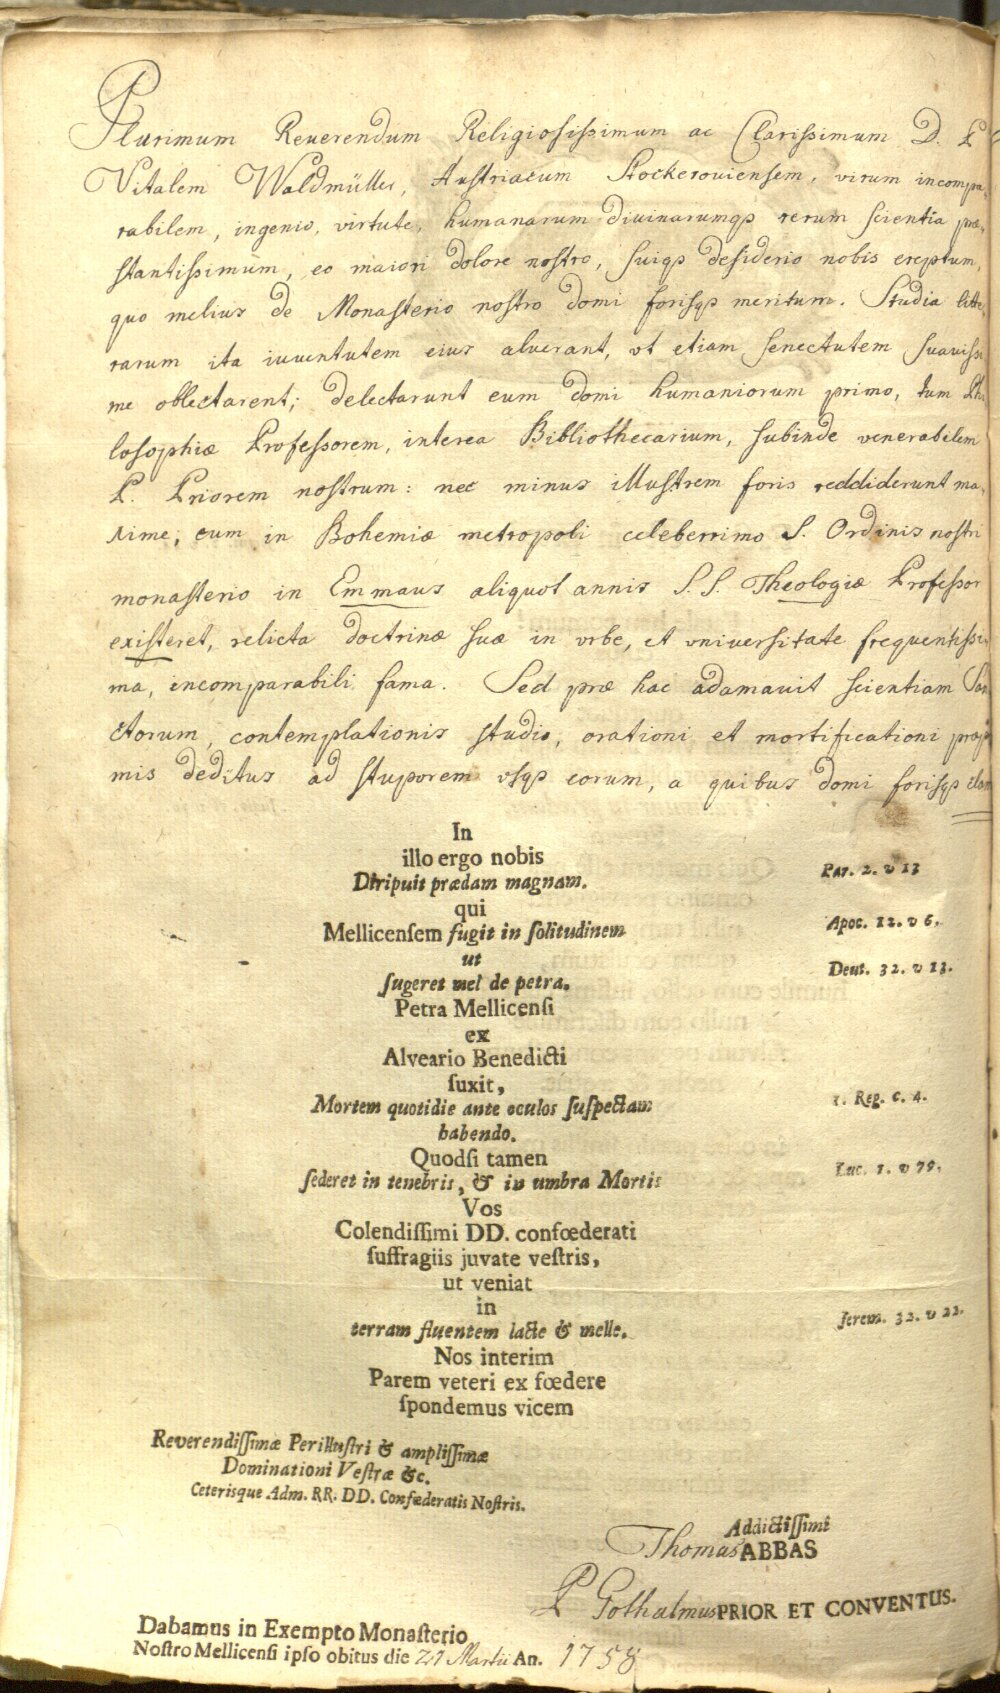 Plurimum Reverendum Religiosissimum ac Clarissimum D. P
Vitalem Waldmüller, Austriacum Stockerouiensem, virum incompa-
rabilem, ingenio, virtute, humanarum diuinarumqꝫ rerum scientia præ-
stantissimum, eo maiori dolore nostro, suiqꝫ desiderio nobis ereptum,
quo melius de Monasterio nostro domi forisqꝫ meritum. Studia litte-
rarum ita iuuentutem eius aluerant, vt etiam senectutem suauissi-
me oblectarent; delectarunt eum domi humaniorum primo, tum Phi
losophiæ Professorem, interea Bibliothecarium, subinde venerabilem
P. Priorem nostrum: nec minus illustrem foris reddiderunt ma-
xime, cum in Bohemiæ metropoli celeberrimo S. Ordinis nostri
monasterio in Emmaus aliquot annis S. S. Theologiæ Professor
existeret, relicta doctrinæ suæ in vrbe, et vniuersitate frequentissi-
ma, incomparabili fama. Sed præ hac adamauit scientiam San
ctorum, contemplationis studio, orationi et mortificationi
mis deditus ad stuporem vsqꝫ eorum, a quibus domi forisqꝫ
In
illo ergo nobis
Diripuit prædam magnam.
Par. 2. v 13
qui
Mellicenſem fugit in ſolitudinem
Apoc. 12. v 6.
ut
ſugeret mel de petra.
Deut. 32. v 13.
Petra Mellicenſi
ex
Alveario Benedicti
ſuxit,
Mortem quotidie ante oculos ſuſpectam
1. Reg. c. 4.
habendo.
Quodſi tamen
ſederet in tenebris, & in umbra Mortis
Luc. 1. v 79.
Vos
Colendiſſimi DD. confœderati
ſuffragiis juvate veſtris,
ut veniat
in
terram fluentem lacte & melle.
Jerem. 32. v 22.
Nos interim
Parem veteri ex fœdere
ſpondemus vicem
Reverendiſſimæ Perilluſtri & ampliſſimæ
Dominationi Veſtræ &c.
Ceterisque Adm. RR. DD. Confœderatis Noſtris.
Addictiſſimi
Thomas ABBAS
P Gothalmus PRIOR ET CONVENTUS.
Dabamus in Exempto Monaſterio
Noſtro Mellicenſi ipſo obitus die 21 Martii An. 1758